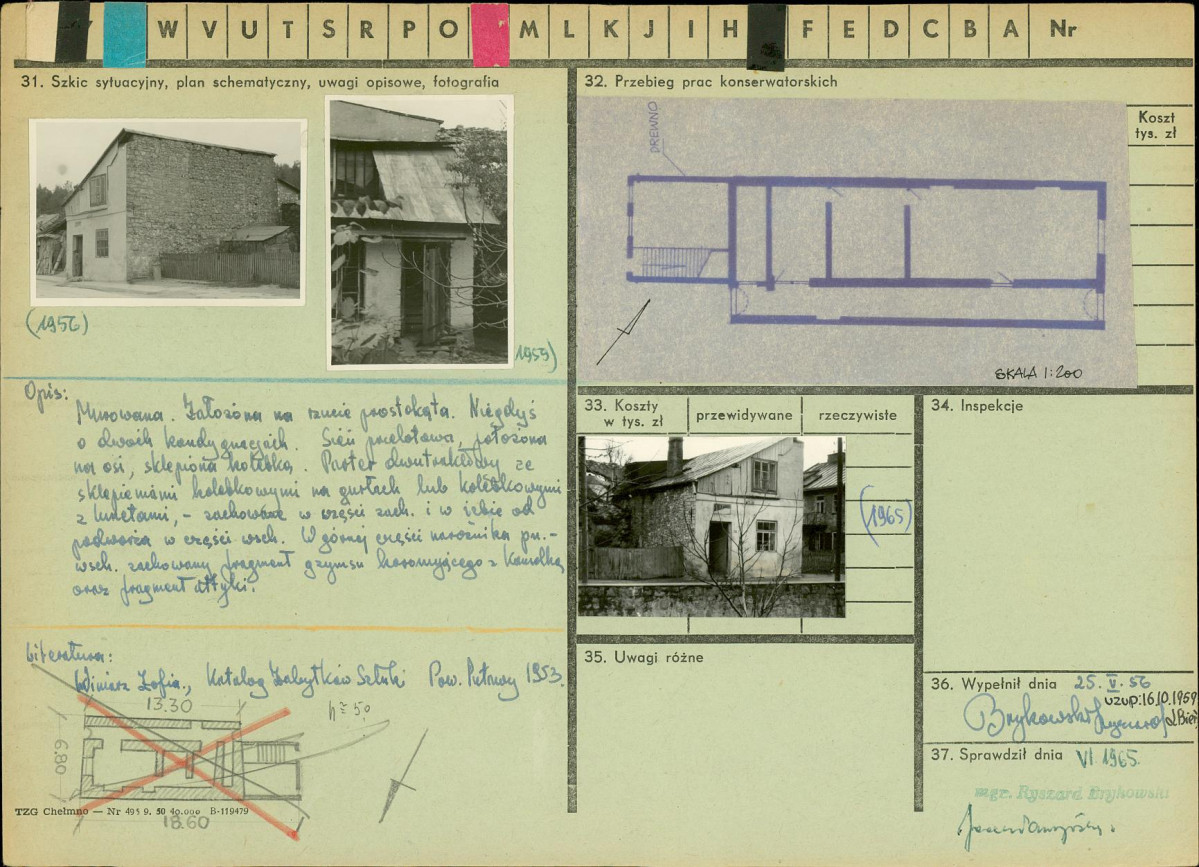 W V U T S R P O M L K J I H F E D C B A Nr
31. Szkic sytuacyjny, plan schematyczny, uwagi opisowe, fotografia
(1956)
1959)
Opis:
Murowana. Założona na rzucie prostokąta. Niegdyś
o dwóch kondygnacjach. Sień przelotowa, położona
na osi, sklepiona kolebką. Parter dwutraktowy ze
sklepieniami kolebkowymi na gurtach lub kolebkowymi
z lunetami, - zachowane w części zach. i w izbie od
podwórza w części wsch. W górnej części narożnika pn.-
wsch. zachowany fragment gzymsu koronującego z kamolką
oraz fragment attyki.
Literatura:
Winiarz Zofia., Katalog Zabytków Sztuki Pow. Puławy 1953.
13.30
h ≅ 5,0
6.80
18.60
TZG Chełmno — Nr 495 9. 50 40.000 B-119479
32. Przebieg prac konserwatorskich
Koszt
tys. zł
DREWNO
SKALA 1:200
33. Koszty
w tys. zł
przewidywane
rzeczywiste
(1965)
34. Inspekcje
35. Uwagi różne
36. Wypełnił dnia 25. V. 56
uzup: 16.10.1959
Brykowski Ryszard
37. Sprawdził dnia VI 1965.
mgr. Ryszard Brykowski